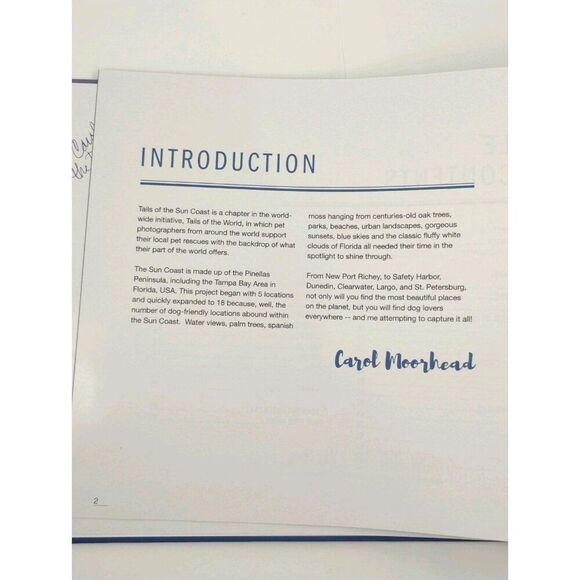 Carol
the
INTRODUCTION
Tails of the Sun Coast is a chapter in the world-
wide initiative, Tails of the World, in which pet
photographers from around the world support
their local pet rescues with the backdrop of what
their part of the world offers.
The Sun Coast is made up of the Pinellas
Peninsula, including the Tampa Bay Area in
Florida, USA. This project began with 5 locations
and quickly expanded to 18 because, well, the
number of dog-friendly locations abound within
the Sun Coast. Water views, palm trees, spanish
moss hanging from centuries-old oak trees,
parks, beaches, urban landscapes, gorgeous
sunsets, blue skies and the classic fluffy white
clouds of Florida all needed their time in the
spotlight to shine through.
From New Port Richey, to Safety Harbor,
Dunedin, Clearwater, Largo, and St. Petersburg,
not only will you find the most beautiful places
on the planet, but you will find dog lovers
everywhere -- and me attempting to capture it all!
Carol Moorhead
2